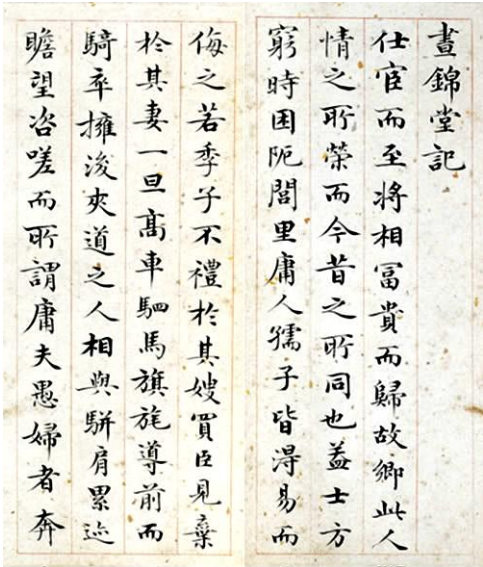 晝錦堂記
仕宦而至將相冨貴而歸故鄉此人
情之所榮而今昔之所同也葢士方
窮時困阨閭里庸人孺子皆淂易而
侮之若季子不禮於其嫂買臣見棄
於其妻一旦髙車駟馬旗旄導前而
騎卒擁後夾道之人相與駢肩累迹
瞻望咨嗟而所謂庸夫愚婦者奔